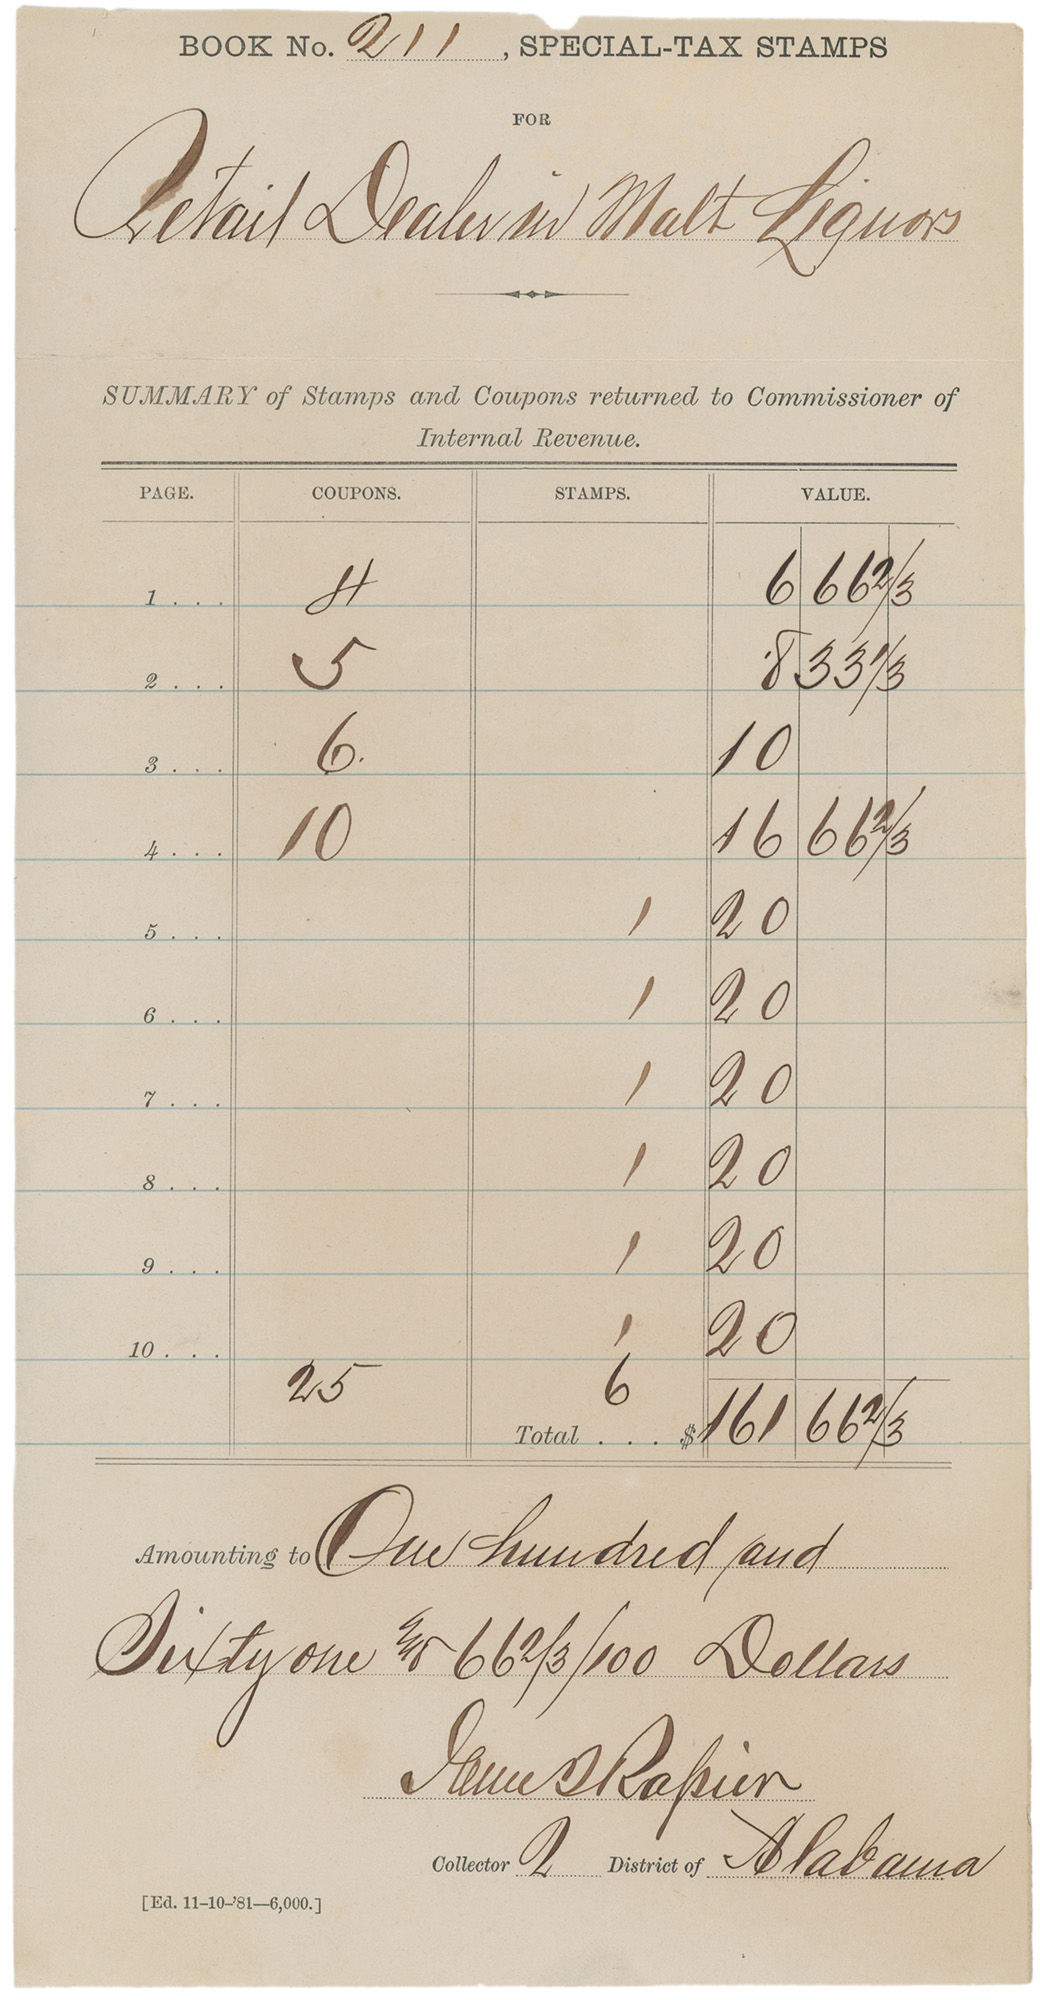 BOOK No. 211, SPECIAL-TAX STAMPS
FOR
Retail Dealer in Malt Liquors
SUMMARY of Stamps and Coupons returned to Commissioner of
Internal Revenue.
PAGE. COUPONS. STAMPS. VALUE.
1 . . . 4 6 66 2/3
2 . . . 5 8 33 1/3
3 . . . 6. 10
4 . . . 10 16 66 2/3
5 . . . 1 20
6 . . . 1 20
7 . . . 1 20
8 . . . 1 20
9 . . . 1 20
10 . . . 1 20
25 6
Total . . . $161 66 2/3
Amounting to One hundred and
Sixty one 66 2/3/100 Dollars
James T Rapier
Collector 2 District of Alabama
[Ed. 11-10-'81—6,000.]